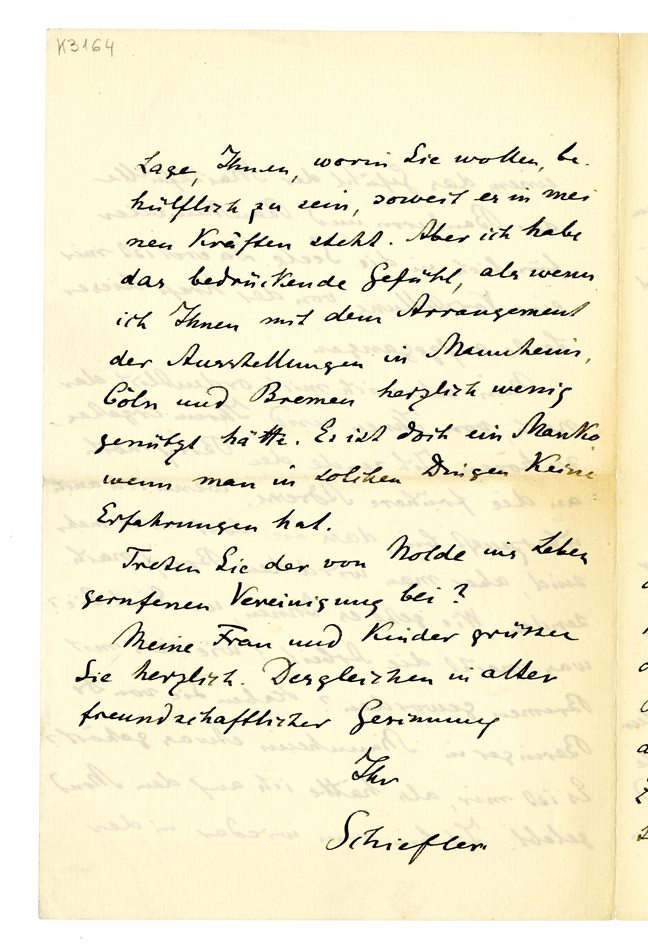 K3164
Lage, Ihnen, worin Sie wollen, be-
hülflich zu sein, soweit es in mei
nen Kräften steht. Aber ich habe
das bedrückende Gefühl, als wenn
ich Ihnen mit dem Arrangement
der Ausstellungen in Mannheim,
Cöln und Bremen herzlich wenig
genützt hätte. Es ist doch ein Manko
wenn man in solchen Dingen keine
Erfahrungen hat.
Treten Sie der von Nolde ins Leben
gerufenen Vereinigung bei?
Meine Frau und Kinder grüssen
Sie herzlich. Desgleichen in alter
freundschaftlicher Gesinnung
Ihr
Schiefler